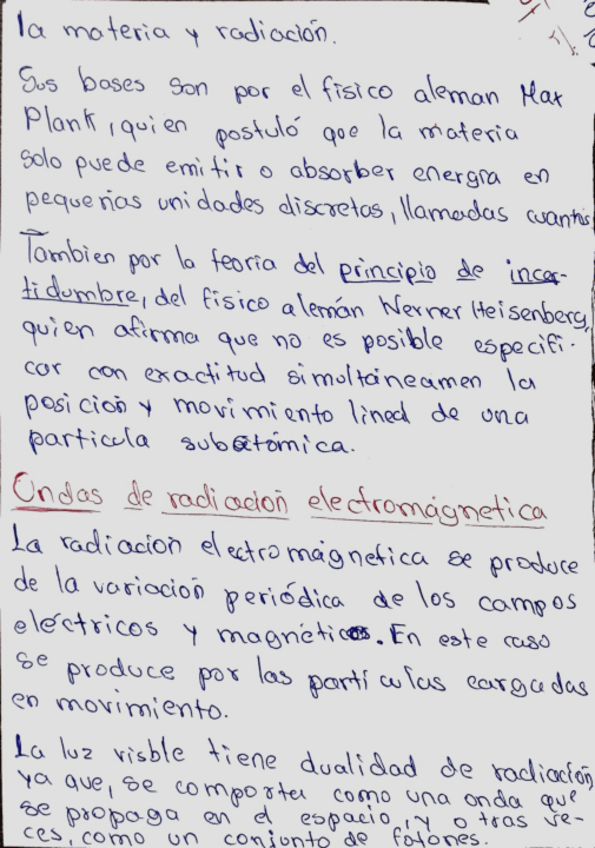 la materia y radiación.
Sus bases son por el físico aleman Max
Plank, quien postuló que la materia
solo puede emitir o absorber energía en
pequeñas unidades discretas, llamadas cuantos
Tambien por la teoria del principio de incer-
tidumbre, del físico alemán Werner Heisenberg,
quien afirma que no es posible especifi-
car con exactitud simultáneamen la
posición y movimiento lineal de una
partícula subatómica.
Ondas de radiación electromágnetica
La radiación electromágnetica se produce
de la variación periódica de los campos
eléctricos y magnéticos. En este caso
se produce por las partículas cargadas
en movimiento.
La luz visble tiene dualidad de radiación,
ya que, se comporta como una onda que
se propaga en el espacio, y otras ve-
ces, como un conjunto de fotones.